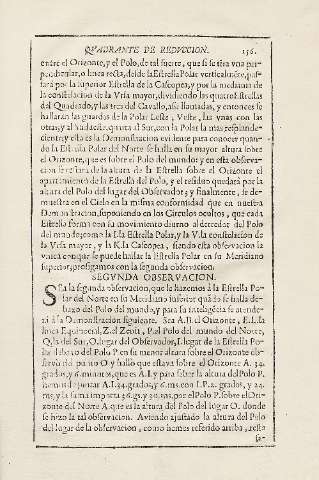 QVADRANTE DE REDVCION. 156.
entre el Orizonte, y el Polo, de tal suerte, que si se tira vna perpendicular, o linea recta, desde la Estrella Polar verticalmẽte, passarà por la superior Estrella de la Casiopea, y por la mediania de
la constelacion de la Vrsa mayor, diuidiendo las quatro Estrellas
del Quadrado, y las tres del Cavallo, assi llamadas, y entonces se
hallaràn las guardas de la Polar Leste, Veste, las vnas con las
otras, y al Sur, con la Polar la mas resplandeciente; y esta es la Demonstracion euidente para conocer quando la Estrella Polar del Norte se halla en su mayor altura sobre
el Orizonte, que es sobre el Polo del mundo: y en esta observacion se restarà de la altura de la Estrella sobre el Orizonte el
apartamiento de la Estrella del Polo, y el residuo quedarà por la
altura del Polo del lugar del Observador; y finalmente, se demuestra en el Cielo en la misma conformidad que en nuestra
Demonstracion, suponiendo en los Circulos ocultos, que cada
Estrella forma con su movimiento diurno al derredor del Polo
del mundo; como la I. la Estrella Polar, y la V. la constelacion de
la Vrsa mayor, y la K. la Casiopea, siendo esta observacion la
vnica con que se puede hallar la Estrella Polar en su Meridiano
superior, prosigamos con la segunda observacion.
SEGVNDA OBSERVACION.
SEa la segunda observacion, que le hazemos à la Estrella Polar del Norte en su Meridiano inferior quãdo se halla debaxo del Polo del mundo, y para su inteligẽcia se atenderà à la Demonstracion siguiente. Sea A.B. el Orizonte, E.L. la
linea Equinocial, Z. el Zenit, P. el Polo del mundo del Norte,
Q. la del Sur, O. lugar del Observador, I. lugar de la Estrella Polar debaxo del Polo P. en su menor altura sobre el Orizonte observò del punto O. y hallò que estava sobre el Orizonte A. 34.
grados, y 6. minutos, que es A.I. y para saber la altura del Polo P.
hemos de juntar A.I. 34. grados, y 6. ms. con I.P. 2. grados, y 24.
ms. y la suma importa 36. gs. y 30. ms. por el Polo P. sobre el Orizonte del Norte A. que es la altura del Polo del lugar O. donde
se hizo la tal observacion. Aviendo ajustado la altura del Polo
del lugar de la observacion, como hemos referido arriba, resta
sa-